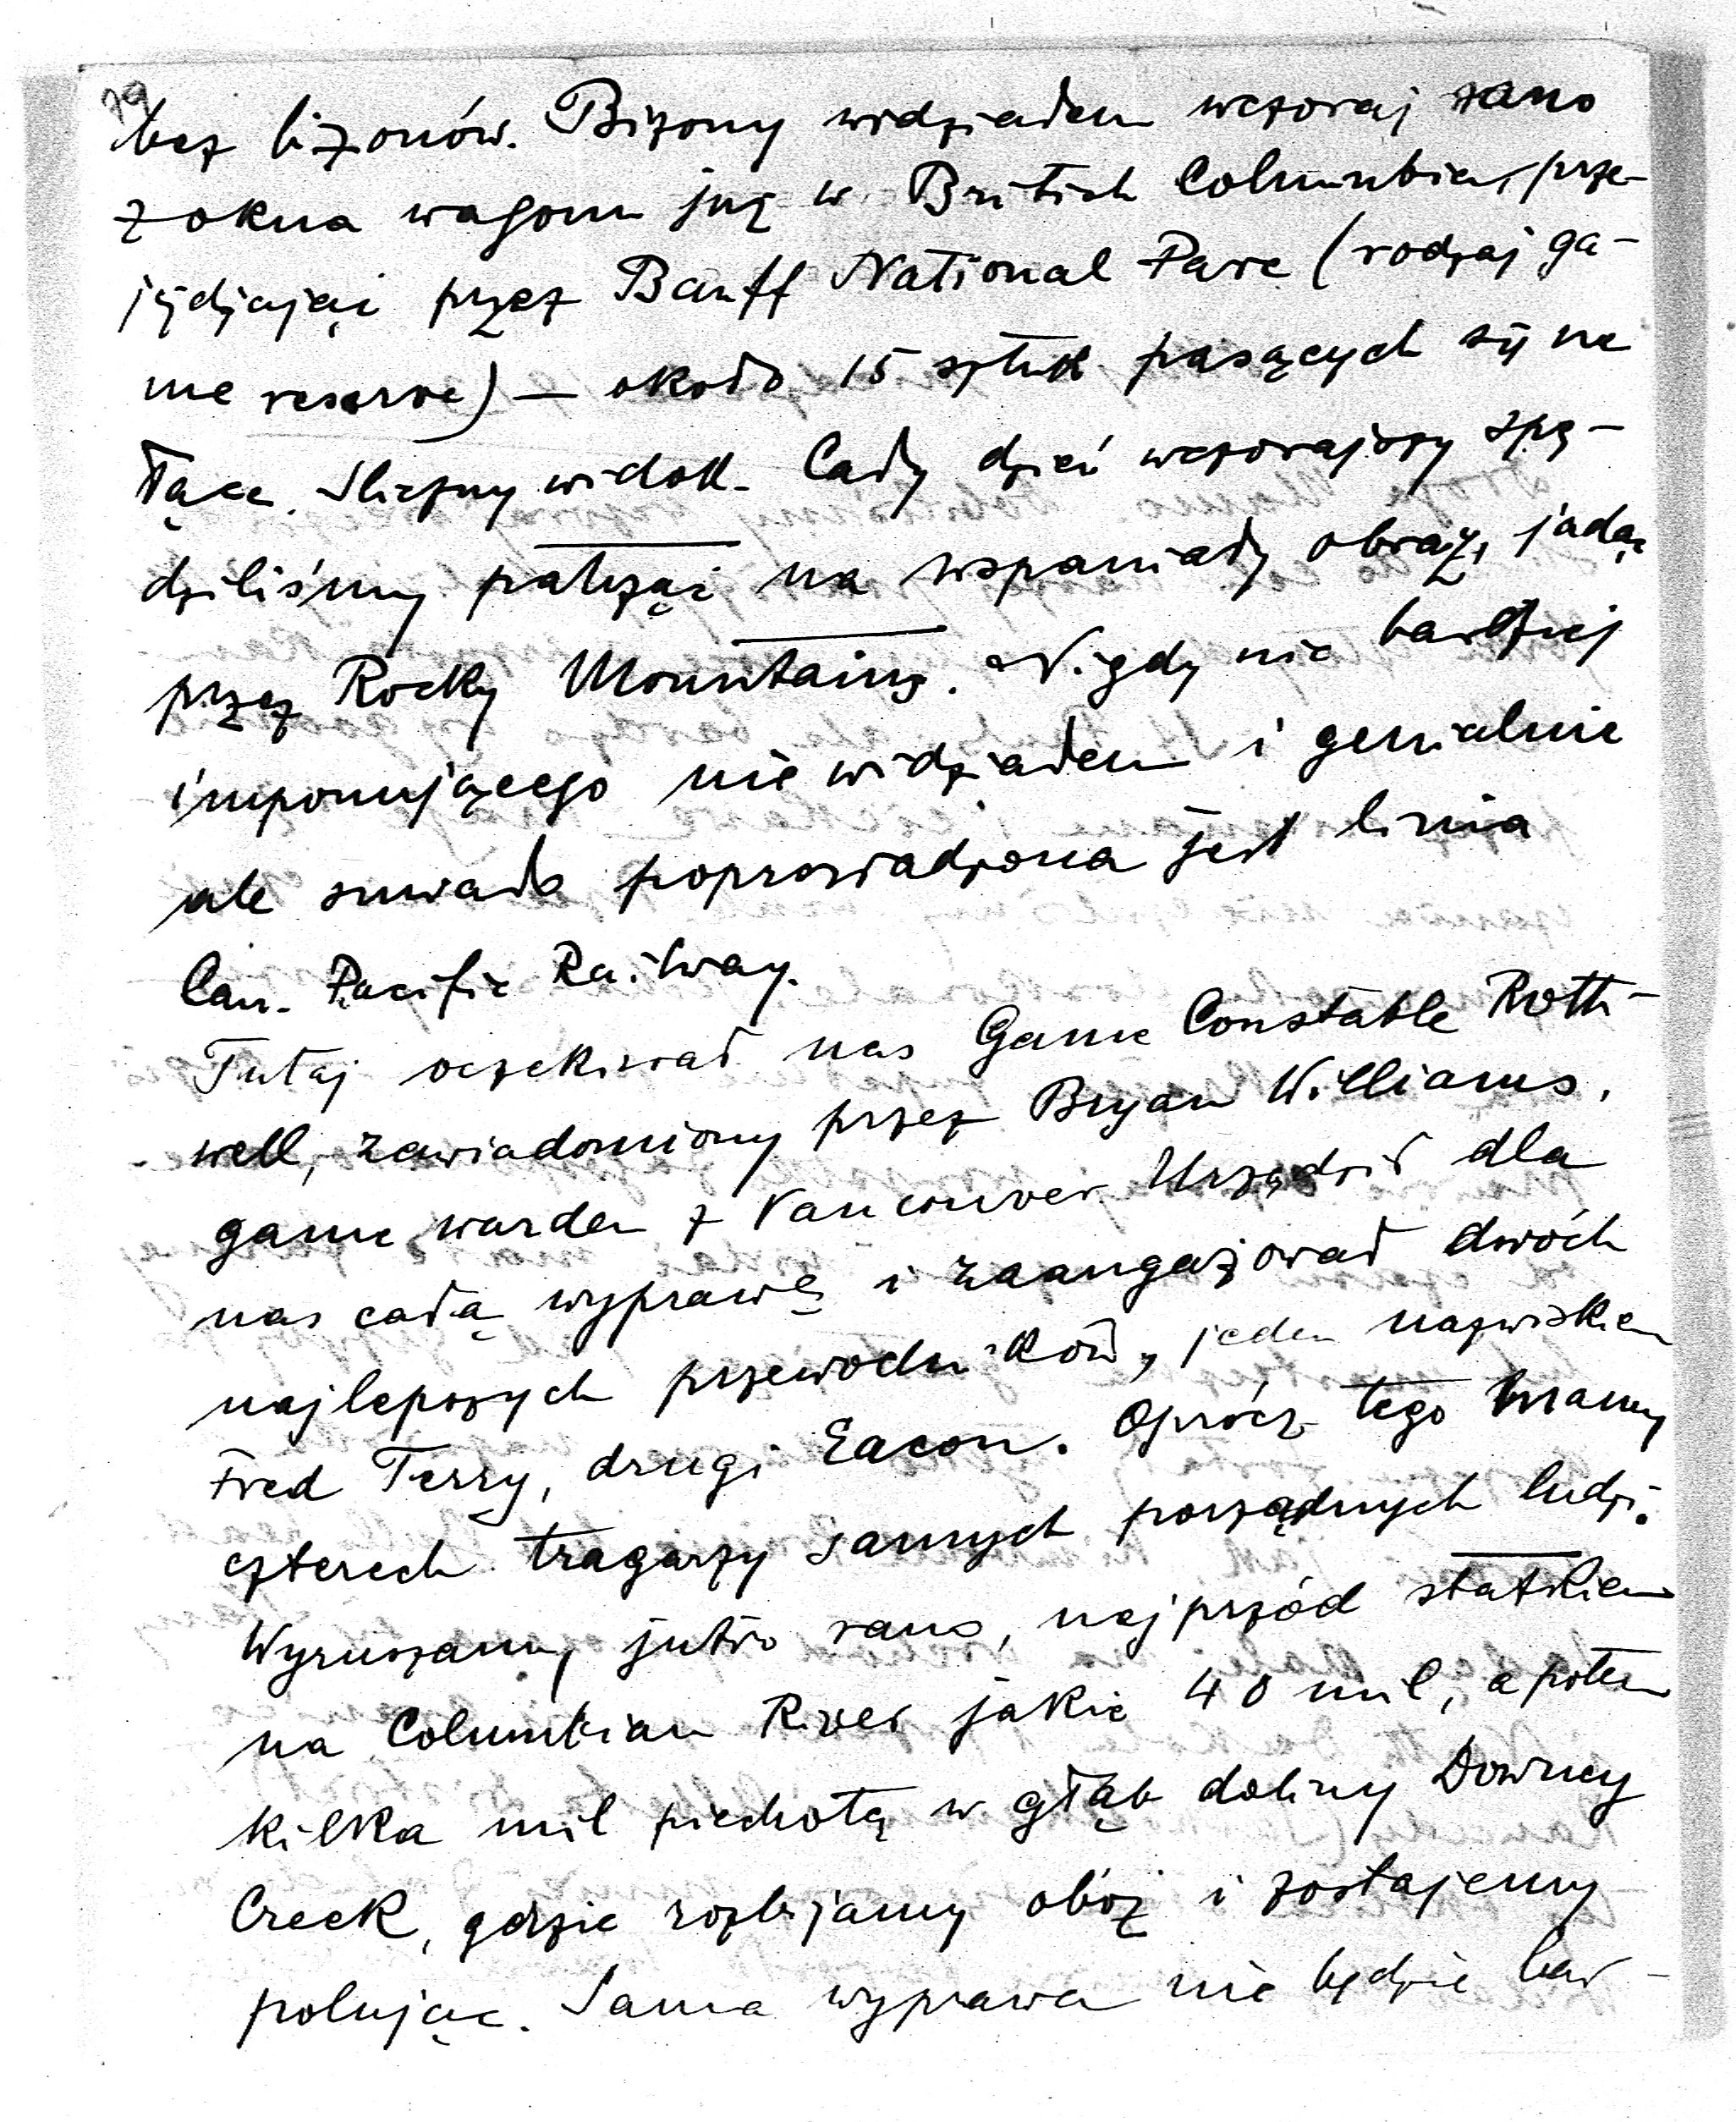 79
bez bizonów. Bizony widziałem wczoraj rano
z okna wagonu już w British Columbia, prze-
jeżdżając przez Banff National Parc (rodzaj ga-
me reserve) — około 15 sztuk pasących się na
łące. Śliczny widok. Cały dzień wczorajszy spę-
dziliśmy patrząc na wspaniały obraz, jadąc
przez Rocky Mountains. Nigdy nic bardziej
imponującego nie widziałem i genialnie
ale poprowadzona jest linia
Can. Pacific Railway.
Tutaj oczekiwał nas Game Constable Roth-
well, zawiadomiony przez Bryan Williams,
game warden z Vancouver. Urządził dla
nas całą wyprawę i zaangażował dwóch
najlepszych przewodników, jeden nazwiskiem
Fred Terry, drugi Eacon. Oprócz tego mamy
czterech tragarzy samych porządnych ludzi.
Wyruszamy jutro rano, najprzód statkiem
na Columbian River jakie 40 mil, a potem
kilka mil piechotą w głąb doliny Downey
Creek, gdzie rozbijamy obóz i zostajemy
polując. Sama wyprawa nie będzie bar-